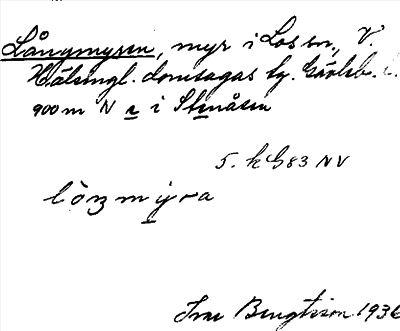 Långmyren, myr i Los sn, V.
Hälsingl. domsagas tg, Gävleb. l.
900 m N e i Stenåsen
5. k G 83 NV
lòŋmỳra
Ivar Bengtsson 1936